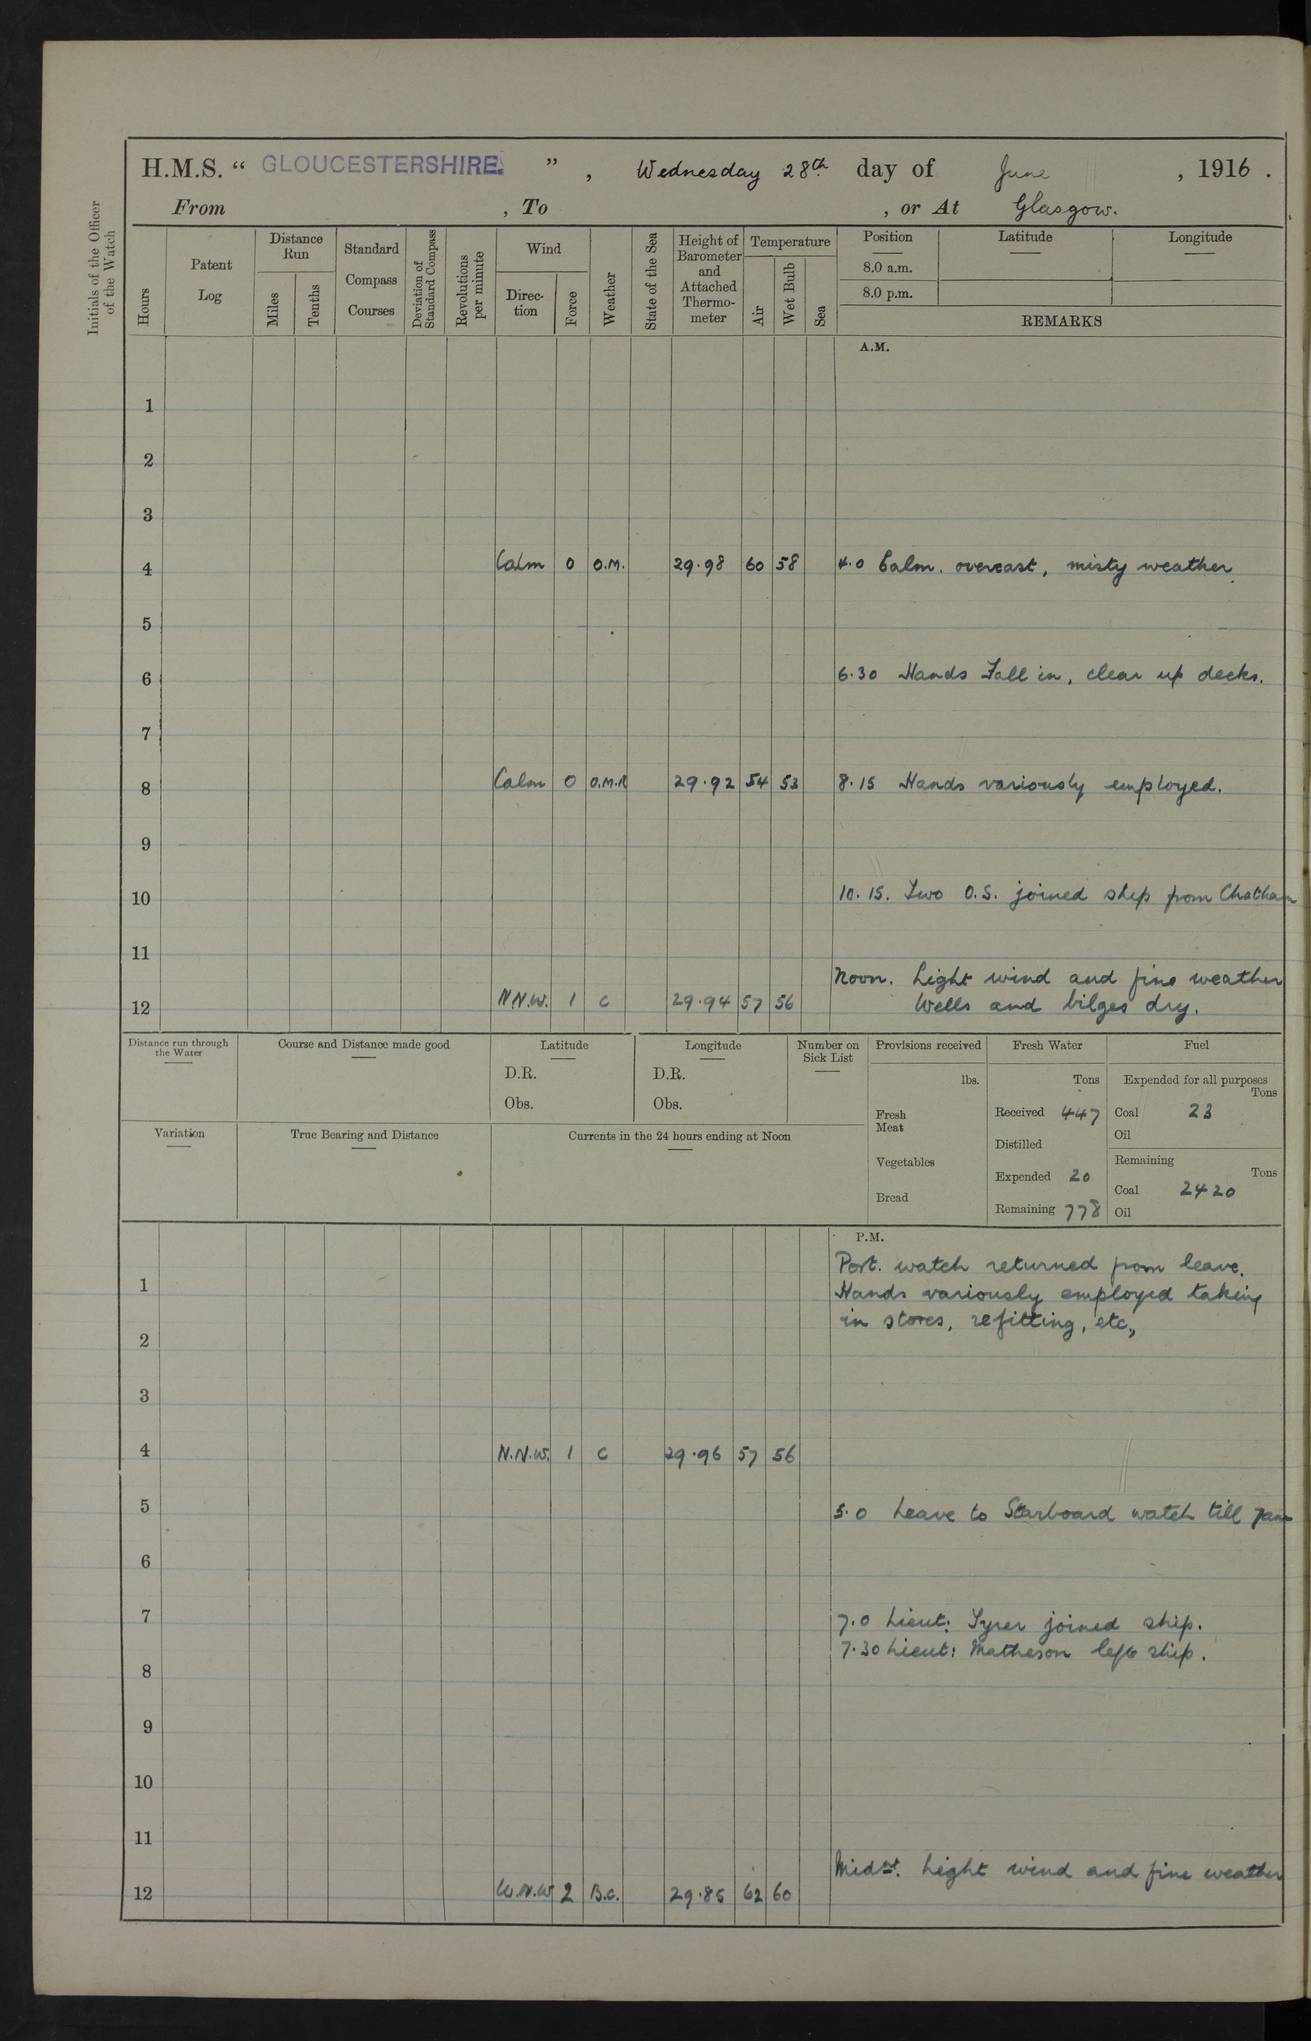 H.M.S. “ GLOUCESTERSHIRE. ” , Wednesday 28th. day of June , 1916 .
From , To , or At Glasgow.
Initials of the Officer of the Watch
Hours
Patent Log
Distance Run
Miles
Tenths
Standard Compass Courses
Deviation of Standard Compass
Revolutions per minute
Wind
Direc- tion
Force
Weather
State of the Sea
Height of Barometer and Attached Thermo- meter
Temperature
Air
Wet Bulb
Sea
Position Latitude Longitude
8.0 a.m.
8.0 p.m.
REMARKS
A.M.
1
2
3
4 Calm 0 O.M. 29.98 60 58 4.0 Calm. overcast, misty weather
5
6 6.30 Hands Fall in, clear up decks.
7
8 Calm 0 O.M.R 29.92 54 53 8.15 Hands variously employed.
9
10 10.15. Two O.S. joined ship from Chatham
11
Noon. Light wind and fine weather
12 N.N.W. 1 C 29.94 57 56 Wells and bilges dry.
Distance run through the Water
Course and Distance made good
Latitude
D.R.
Obs.
Longitude
D.R.
Obs.
Number on Sick List
Provisions received
lbs.
Fresh Meat
Vegetables
Bread
Fresh Water
Tons
Received 447
Distilled
Expended 20
Remaining 778
Fuel
Expended for all purposes
Tons
Coal 23
Oil
Remaining
Tons
Coal 2420
Oil
Variation
True Bearing and Distance
Currents in the 24 hours ending at Noon
P.M.
Port. watch returned from leave.
1 Hands variously employed taking
in stores, refitting, etc.,
2
3
4 N.N.W. 1 C 29.96 57 56
5 5.0 Leave to Starboard watch till 7am
6
7 7.0 Lieut: Tyrer joined ship.
7.30 Lieut: Matheson left ship.
8
9
10
11
Midst. Light wind and fine weather
12 W.N.W 2 B.C. 29.85 62 60